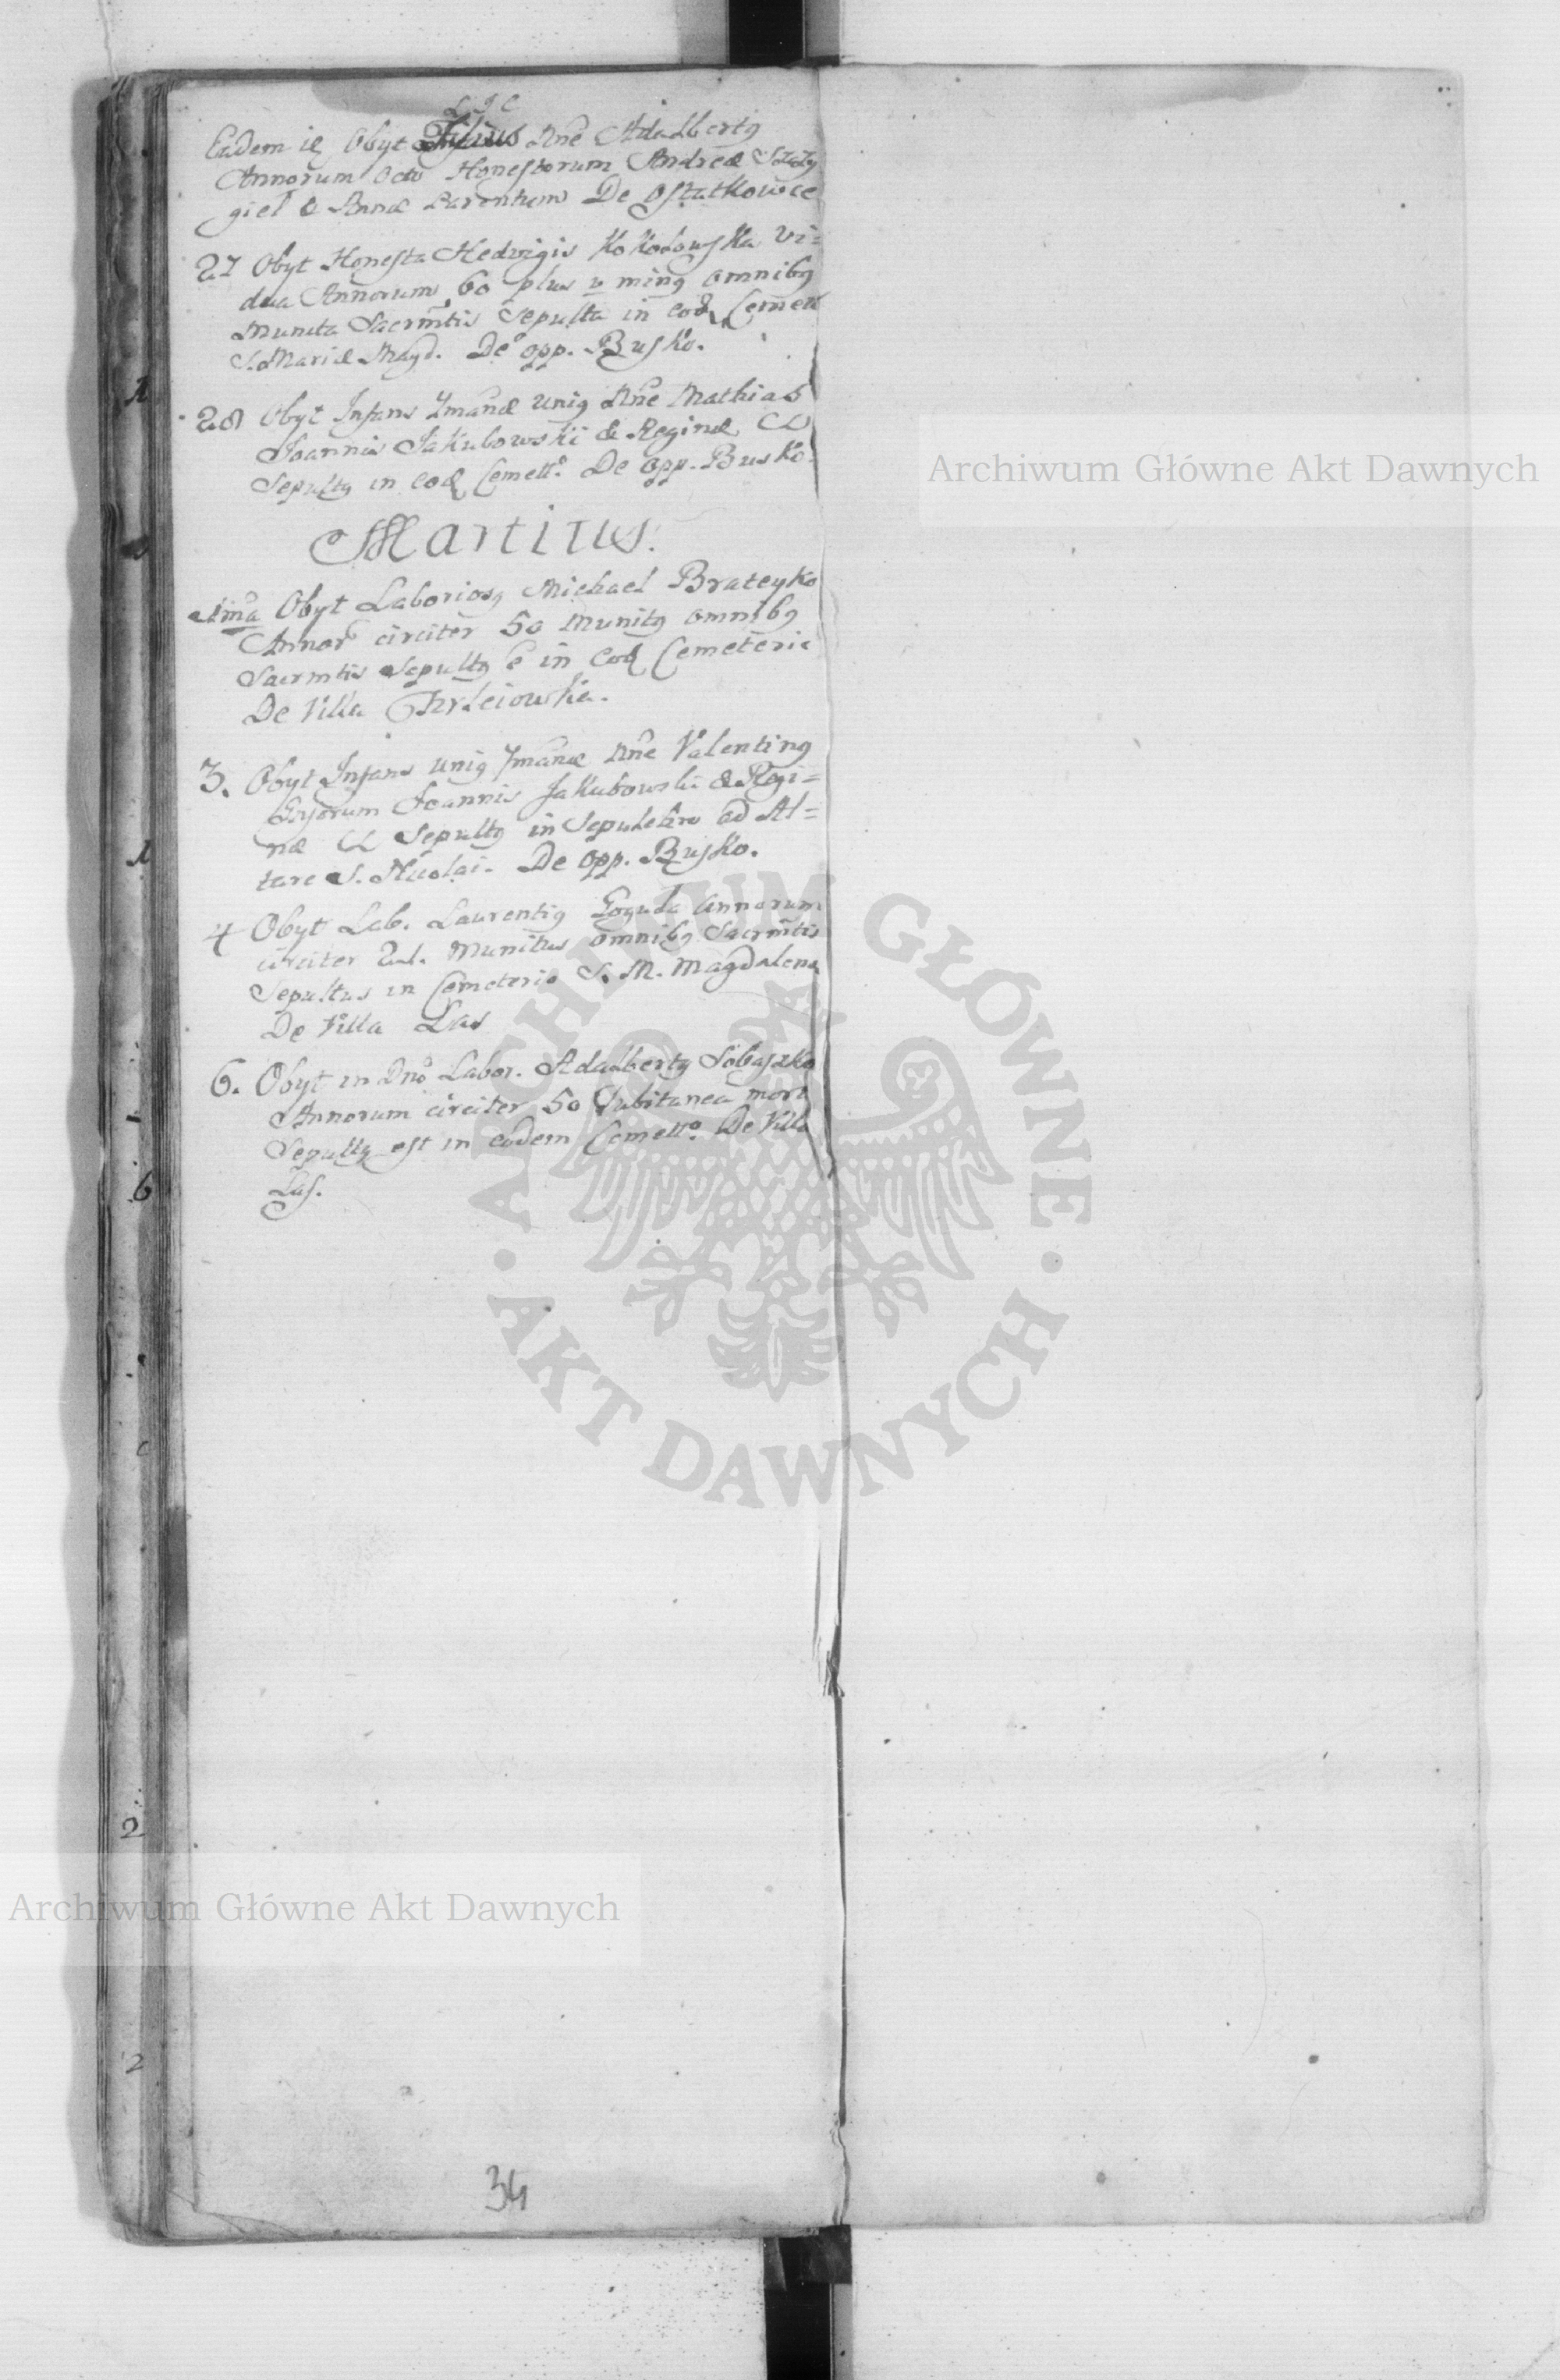 L J C
Eadem ie Obyt Filius Nne Adalbertg
Annorum Octo Honestorum Andreæ Szczy
giel & Annæ Parentum De Ostatkowce
27 Obyt Honesta Hedvigis Kokodowska Vi=
dua Annorum 60 plus v ming omnibg
Munita Sacrmtis Sepulta in eod Cemett
S. Mariæ Magd. De opp. Busko.
28 Obyt Infans 7manæ unig Nne Mathias
Joannis Jakubowski & Reginæ CL
Sepultg in eod Cemett° De opp. Busko.
Martius.
1ma Obyt Laboriosg Michael Brateyko
Annor circiter 50 Munitg omnibg
Sacrmtis Sepultg e in eod Cemeterio
De Villa
3. Obyt Infans unig 7manæ Nne Valenting
Joannis Jakubowski & Regi=
næ CL Sepultg in Sepulchro ad Al=
tare S. Nicolai. De opp. Busko.
4 Obyt Lab. Laurentig Goguda Annorum
circiter Munitus omnibg Sacrmtis
Sepultus in Cemeterio S. M. Magdalena
De Villa Las
6. Obyt in Dno Labor. Adalbertg Sobaszko
Annorum circiter 50 Subitanea mort
Sepultg est in eodem Cemett° De Villa
Las.
34
Archiwum Główne Akt Dawnych
ARCHIWUM GŁÓWNE · AKT DAWNYCH ·
Archiwum Główne Akt Dawnych